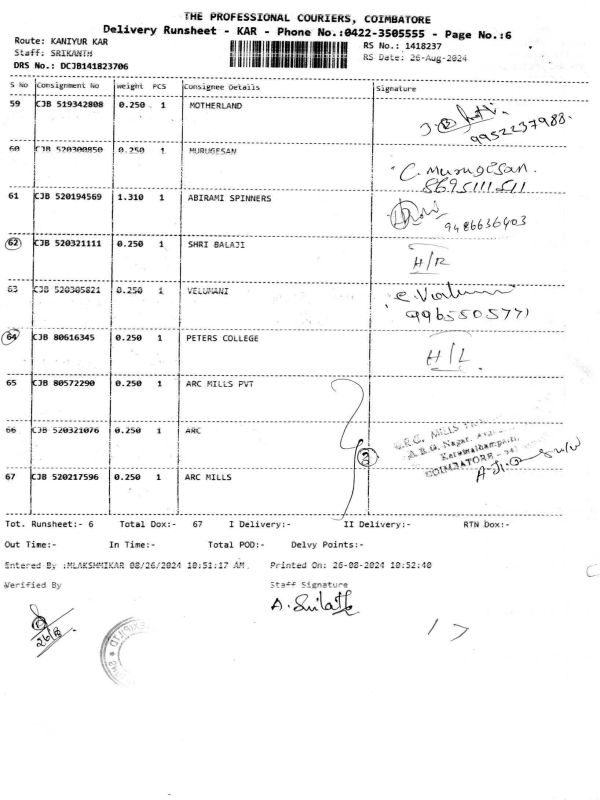 THE PROFESSIONAL COURIERS, COIMBATORE
Delivery Runsheet - KAR - Phone No.:0422-3505555 - Page No.:6
Route: KANIYUR KAR RS No.: 1418237
Staff: SRIKANTH RS Date: 26-Aug-2024
DRS No.: DCJB141823706
S No Consignment No weight PCS Consignee Details Signature
59 CJB 519342808 0.250 1 MOTHERLAND
9952237988
60 CJB 520300850 0.250 1 MURUGESAN
C. Murugesan.
8695111511
61 CJB 520194569 1.310 1 ABIRAMI SPINNERS
9486636403
62 CJB 520321111 0.250 1 SHRI BALAJI
H/R
63 CJB 520305821 0.250 1 VELUMANI
9965505771
64 CJB 80616345 0.250 1 PETERS COLLEGE
H/L
65 CJB 80572290 0.250 1 ARC MILLS PVT
66 CJB 520321076 0.250 1 ARC
3
MILLS
Nagar,
COIMBATORE - 641
67 CJB 520217596 0.250 1 ARC MILLS
Tot. Runsheet:- 6 Total Dox:- 67 I Delivery:- II Delivery:- RTN Dox:-
Out Time:- In Time:- Total POD:- Delvy Points:-
Entered By :MLAKSHMIKAR 08/26/2024 10:51:17 AM. Printed On: 26-08-2024 10:52:40
Verified By Staff Signature
26/8